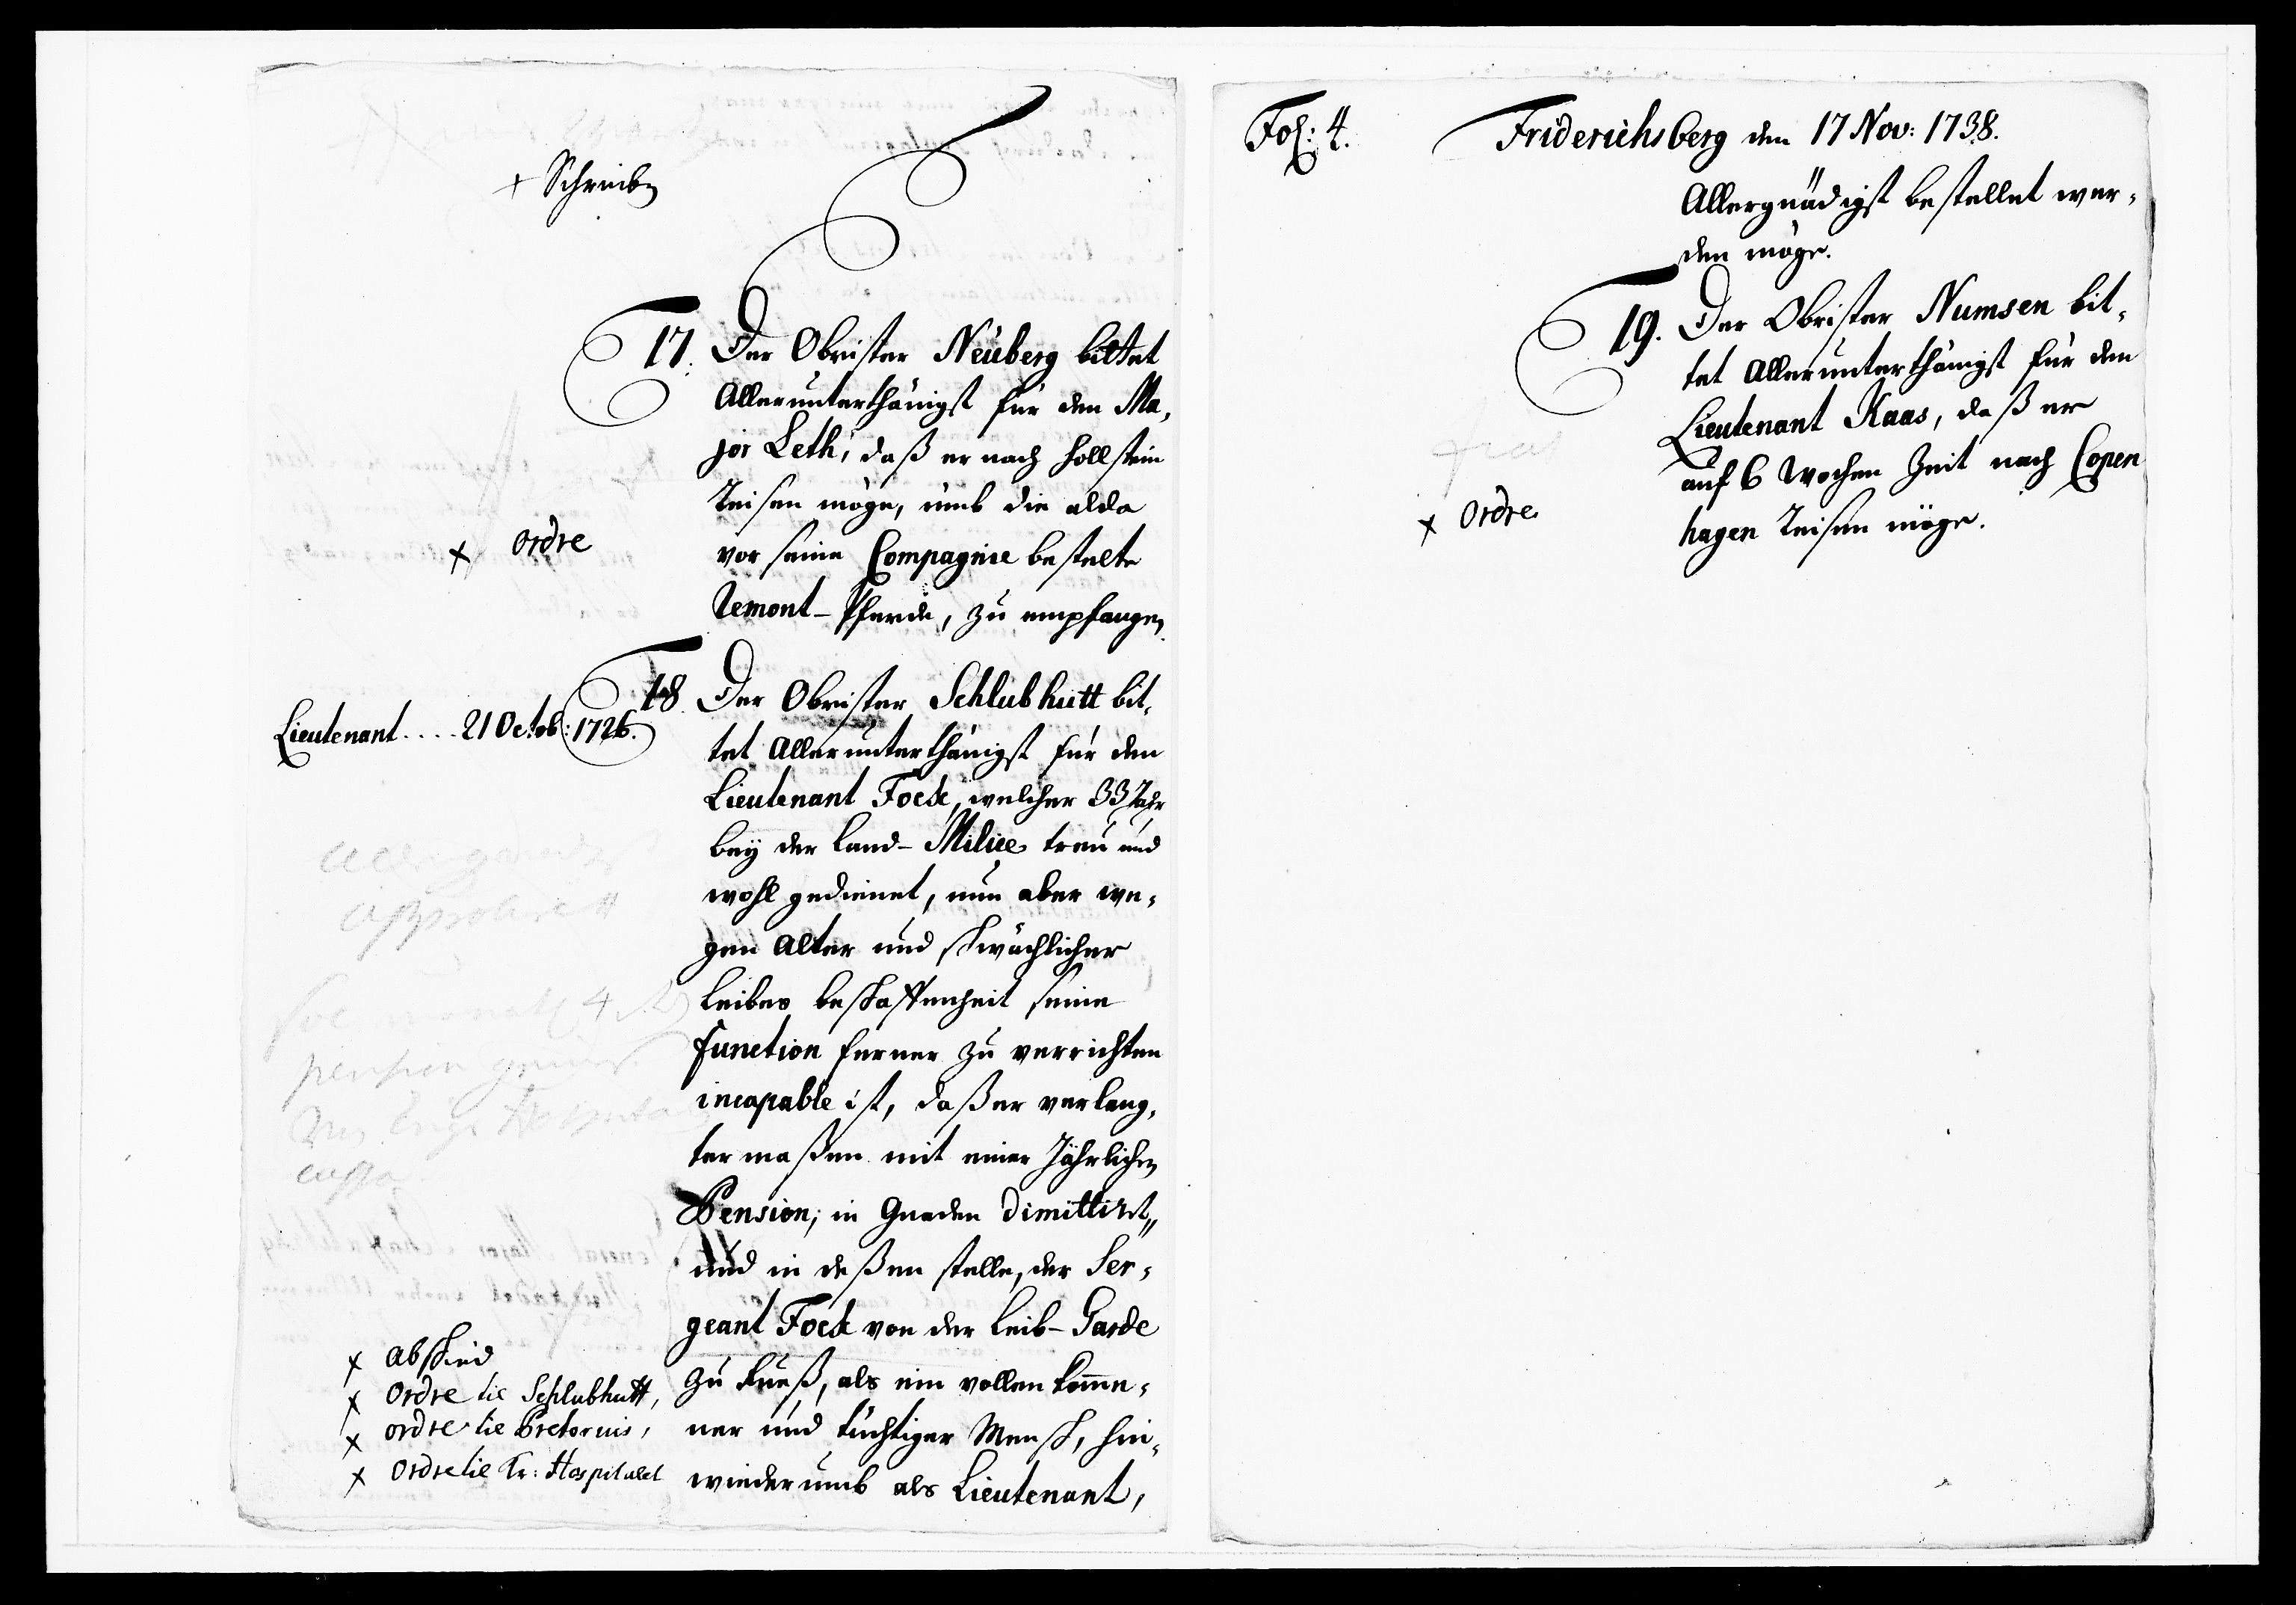 + Schreiben
17. Der Obrister Neuberg bittet
Allerunterthänigst für den Ma,
jor Leth, daß er nach Hollstein
Reisen möge, umb die alda
vor seine Compagnie bestelte
Remont-Pferde, zu empfangen.
x ordre
18. Der Obrister Schlubhutt bit,
tet Allerunterthänigst für den
Lieutenant Fock, welcher 33 Jahr
bey der Land-Milice treu und
wohl gedienet, nun aber we,
gen Alter und schwächlicher
Leibes beschaffenheit seine
function ferner zu verrichten
incapable ist, daß er verlang,
ter maßen mit einer Jährlichen
Pension, in Gnaden dimittirt,,
und in deßen stelle, der Ser,
geant Fock von der Leib-Garde
zu Fueß, als ein vollenkomme,
ner und tüchtiger Mensch, hin,
wiederumb als Lieutenant,
Lieutenant .... 21 Octob: 1726.
allergnädigst
approbirett
4
pension
cassa
x Abschied
x Ordre tie Schlubhutt,
x ordre tie Pretorius,
x Ordre tie Kr: Hospitalet
Fol: 4. Friderichsberg den 17 Nov: 1738.
Allergnädigst bestellet wer,
den möge.
19. Der Obrister Numsen bit,
tet Allerunterthänigst für den
Lieutenant Kaas, daß er
auf 6 Wochen Zeit nach Copen
hagen Reisen möge.
fiat
x Ordre